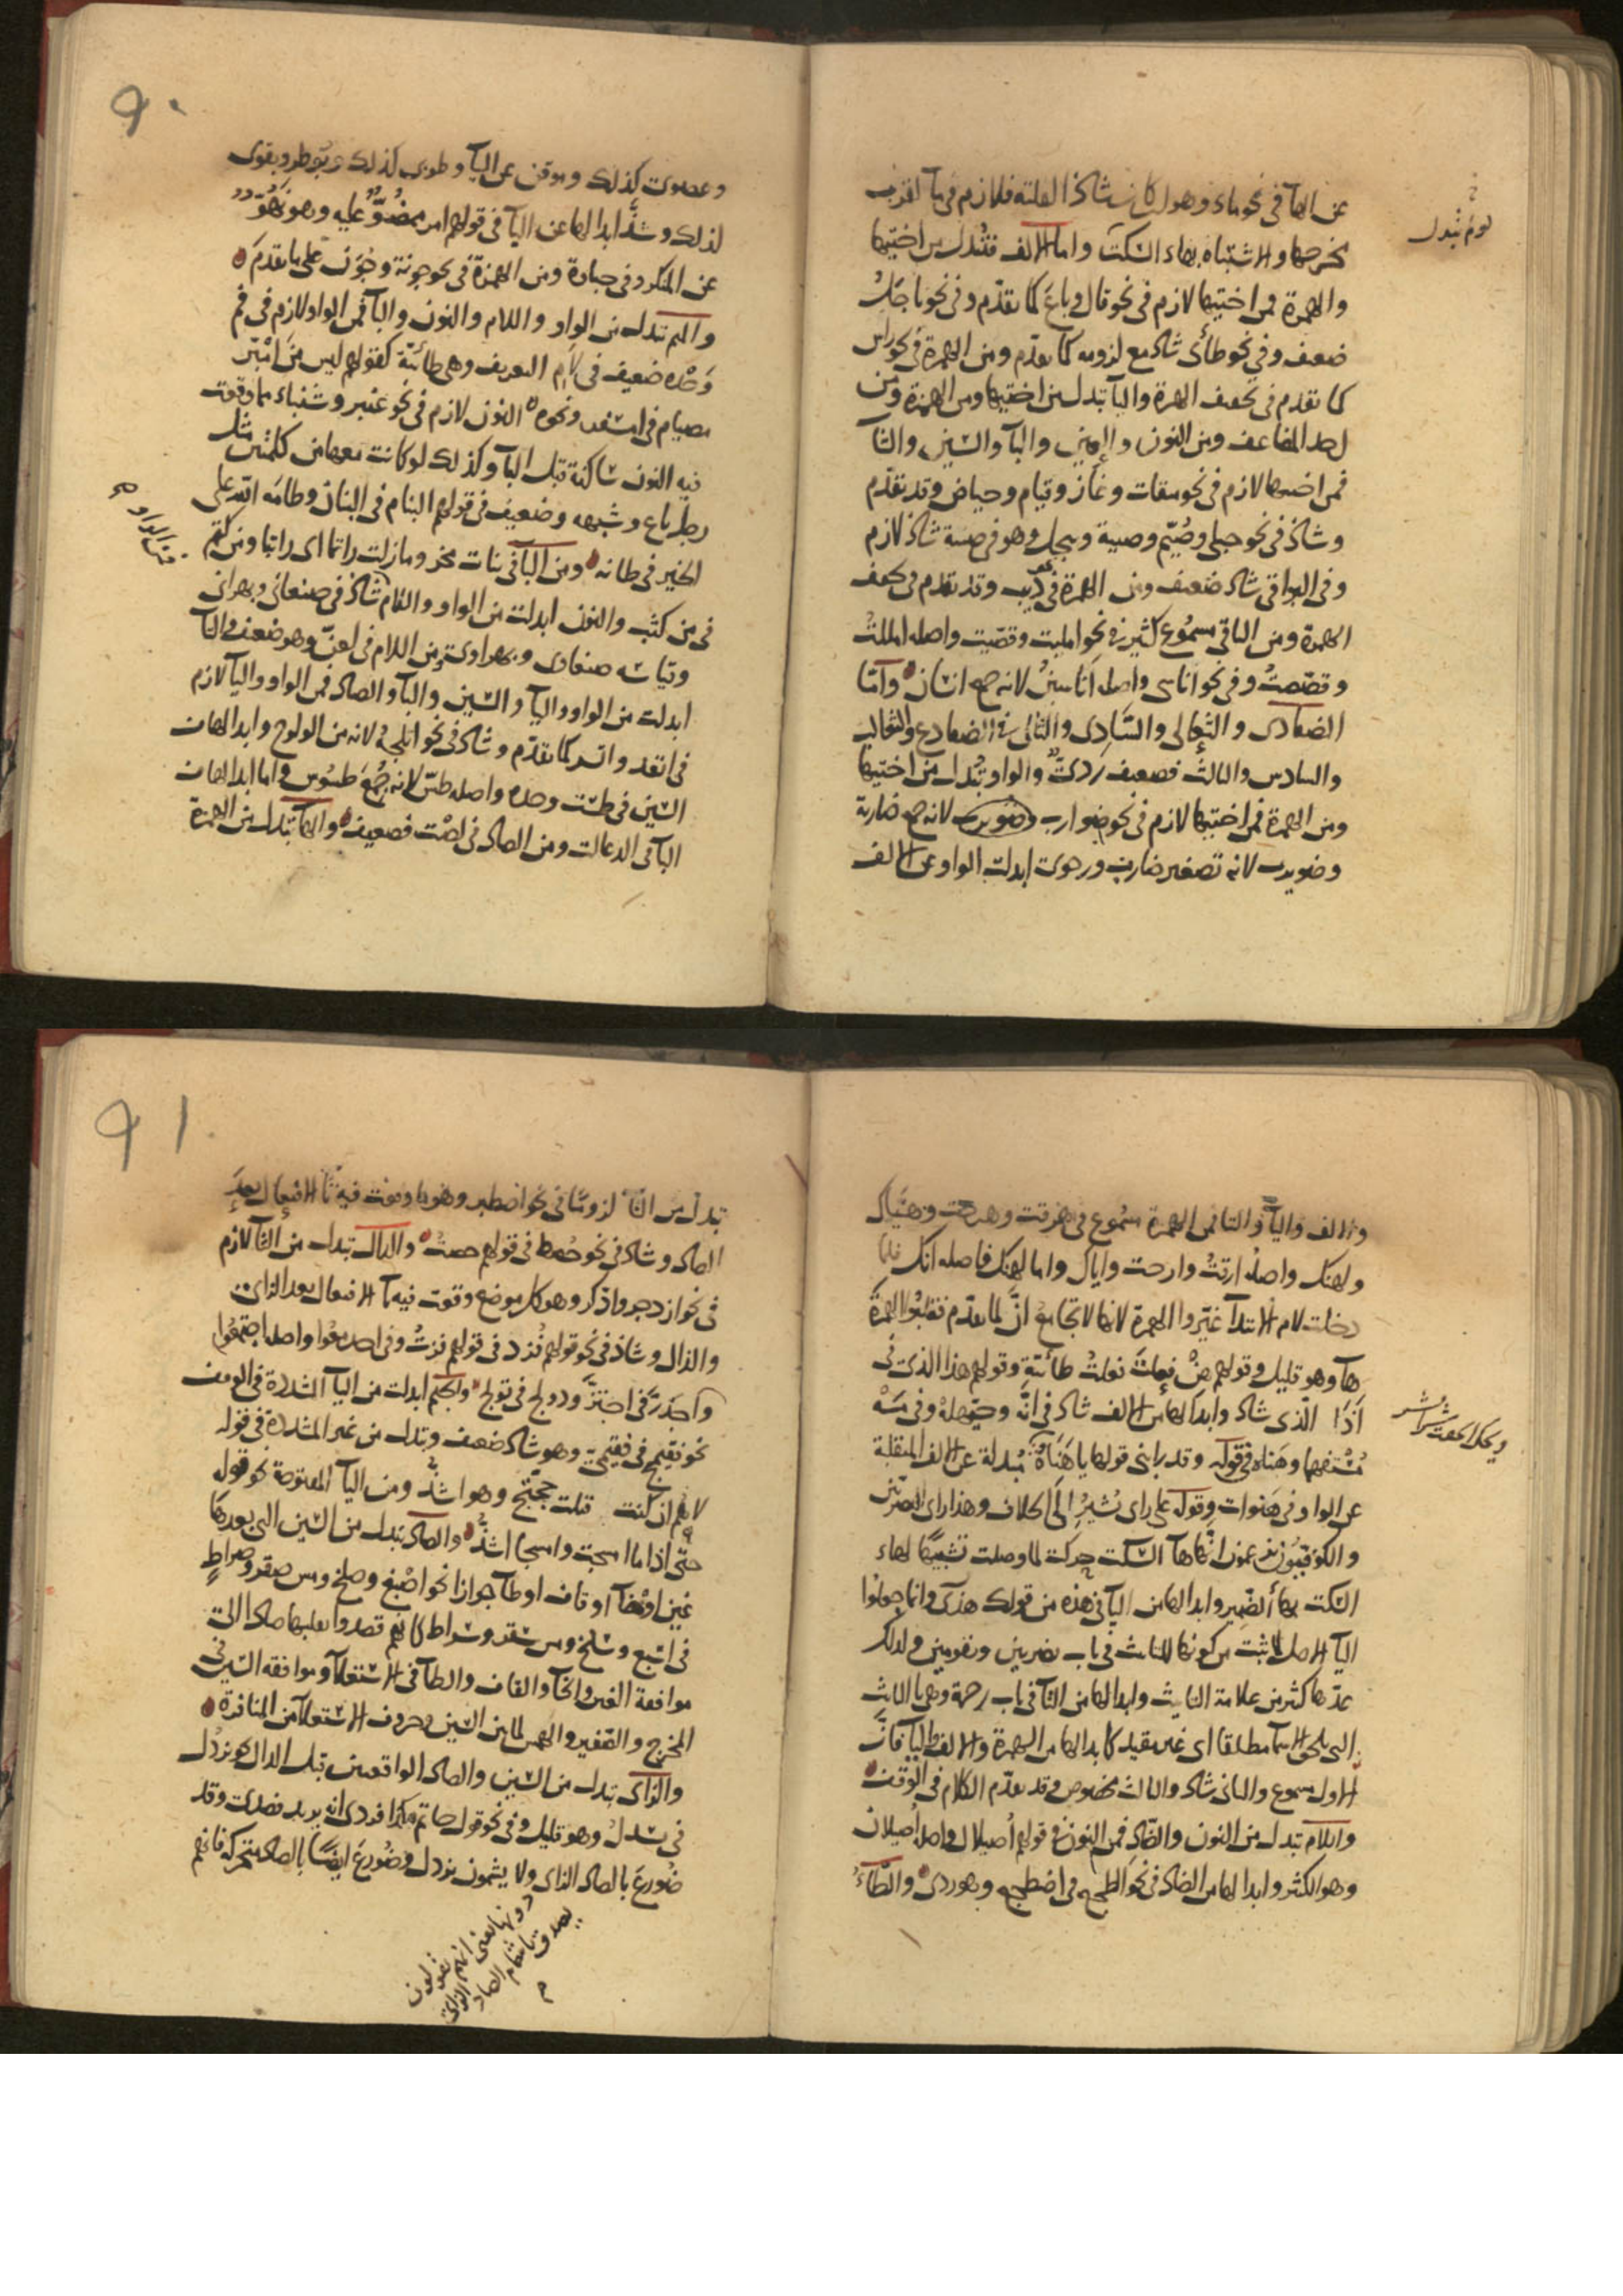 عن الهآ في نحو ماء وهو لكان شاذ العلته فلازم في مآ لقرب
لزم تبدل
مخرجها والاشتباه بهاء السكت واما الالف فتبدل من اختيها
والهمزة فمن اختيها لازم في نحو قال وباع كما تقدّم وفي نحو ياجل
ضعف وفي نحو طأئى شاذ مع لزومه كما تقدّم ومن الهمزة في نحو راس
كما تقدم في تخفيف الهمزة واليآ تبدل من اختيها ومن الهمزة ومن
احد المضاعف ومن النون والعين والبآ والسين والثآ
فمن اختيها لازم في نحو ميقات وغاز وقيام وحياض وقد تقدّم
وشاذ في نحو حبلى وصُيّم وصبية وييجل وهو في صبية شاذ لازم
وفي البواقي شاذ ضعيف ومن الهمزة في نحو ذيب وقد تقدم في تخفيف
الهمزة ومن الباقي مسموع كثير في نحو امليت وقصّيت واصله امللتُ
وقصّصتُ وفي نحو اناسى واصله اناسين لانه جمع انسان وامّا
الضفادى والثعالى والسادى والثالى في الضفادع والثعالب
والسادس والثالث فضعيف ردىّ والواو تُبدل من اختيها
ومن الهمزة فمن اختيها لازم في نحو ضوارب وضويرب لانه جمع ضاربة
وضويرب لانه تصغير ضارب ورحوى ابدلت الواو عن الالف
٩٠
وعصوى كذلك وموقن عن اليآ وطوبى كذلك وبوطر وبقوى
لذلك وشذّ ابدالها عن اليآ في قولهم امر ممضُوٌّ عليه وهو نَهُوٌّ
عن المنكر وفي جباوة ومن الهمزة في نحو جونة وجُوَن على ما تقدّم
والميم تبدل من الواو واللام والنون والبآ فمن الواو لازم في فم
وَحْده ضعيف في لام التعريف وهى طائيّة كقولهم ليس من امبّر
مصيام في امسفر ونحوه النون لازم في نحو عنبر وشنباء مما وقعت
فيه النون ساكنة قبل البآ وكذلك لو كانت معها من كلمتين مثل
ربط باع وشبهه وضعيف في قولهم البنام في البنان وطامَه اللّه على
الخير في طانه ومن البآ في بنات مخر وما زلت راتما اى راتبا ومن كثم
في من كثب والنون ابدلت من الواو واللام شاذ في صنعانى وبهرانى
وقياسه صنعاوى وبهراوى ومن اللام في لعنّ وهو ضعيف والتآ
ابدلت من الواو واليآ والسين والبآ والصاد فمن الواو واليآ لازم
في اتعد واتسر كما تقدّم وشاذ في نحو اتلجه لانه من الولوج وابدالها من
السين في طست وحده واصله طسّ لانه جُمعَ طسوس واما ابدالها من
البآ في الذعالت ومن الصاد في لصْت فضعيف والهآ تبدل من الهمزة
والالف واليآ والتا فمن الهمزة مسموع في هرقت وهرحت وهيّاك
ولهنك واصله ارقتُ وارحت واياك واما لهنك فاصله انك فلما
دخلت لام الابتدآ غيّروا الهمزة لانها لا تجامع انّ لما تقدّم فقلبوا الهمزة
هآ وهو قليل وقولهم هنْ فعلت فعلتُ طائيّة وقولهم هذا الذى في
أَذا الّذى شاذ وابدالها من الالف شاذ في انَّه وحيّهله وفي مَهْ
مُستفهما وهَناه في قوله وقد رابنى قولها يا هَناهُ مبدلة عن الالف المنقلبة
ويحك الحقت شرا بشر
عن الواو في هَنوات وقوله على راى يُشير الى الخلاف وهذا راى البصريّين
والكوفيّون يزعمون انّها هآ السكت حركت لما وصلت تشبيهًا لهاء
السكت بهآ الضمير وابدالها من اليآ في هذه من قولك هذى وانما جعلوا
اليآ اصلا لما ثبت من كونها للتانيث في باب تضربين وتقومين ولذلك
عدّها كثير من علامة التانيث وابدالها من التآ في باب رحمة وهى التانيث
التى تلحق الاسمآ مطلقا اى غير مقيد كابدالها من الهمزة والالف واليآ فانّ
الاول مسموع والثانى شاذ والثالث مخصوص وقد تقدّم الكلام في الوقف
واللام تبدل من النون والضّاد فمن النون في قولهم أصيلال واصله أصيلان
وهو اكثر وابدالها من الضاد في نحو الطجع في اضطجع وهو ردى والطّآءُ
٩١
تبدل من التّآ لزومًا في نحو اضطبر وهو ما وقعت فيه تآ الافتعال بعد
الصاد وشاذ في نحو حُصط في قولهم حصتُ والدال تبدل من التآ لازم
في نحو ازدجر واذّكر وهو كل موضع وقعت فيه تآ الافتعال بعد الزاى
والذال وشاذ في نحو قولهم فُزد في قولهم فزتُ وفي اجدمعُوا واصله اجتمعُوا
واجدزّ في اجتزّ ودولج في تولج والجيم ابدلت من اليآ المشدّدة في الوقف
نحو فقيمج في فقيمىّ وهو شاذ ضعيف وتبدل من غير المشدّدة في قوله
لاهُمّ ان كنت قبلت حجّتج وهو اشذّ ومن اليآ المفتوحة نحو قول
حتّى اذا ما امسجت وامسجا اشذُّ والصاد تبدل من السين التى بعدها
غين اوخآ او قاف او طآ جوازا نحو اصْبغ وصلخ ومس صقر وصراطٍ
في اسبغ وسلخ ومس سقر وسراط كانهم قصدوا بقلبها صادا الى
موافقة الغين والخآ والقاف والطآ في الاستعلآ وموافقه السين في
المخرج والصّفير والهمس لما بين السين وحروف الاستعلآ من المنافرة
والزّاى تبدل من السين والصاد الواقعتين قبل الدال نحو يزدُل
في يسدلُ وهو قليل وفي نحو قول حاتم هكذا فزدى انه يريد فصدى وقد
ضُورعَ بالصاد الزاى ولا يشمون يزدل وضُورعَ ايضًا بالصاد متحركة فانهم
دونها يعنى انهم يقولون
يصدق باشمام الصاد الزاى
م